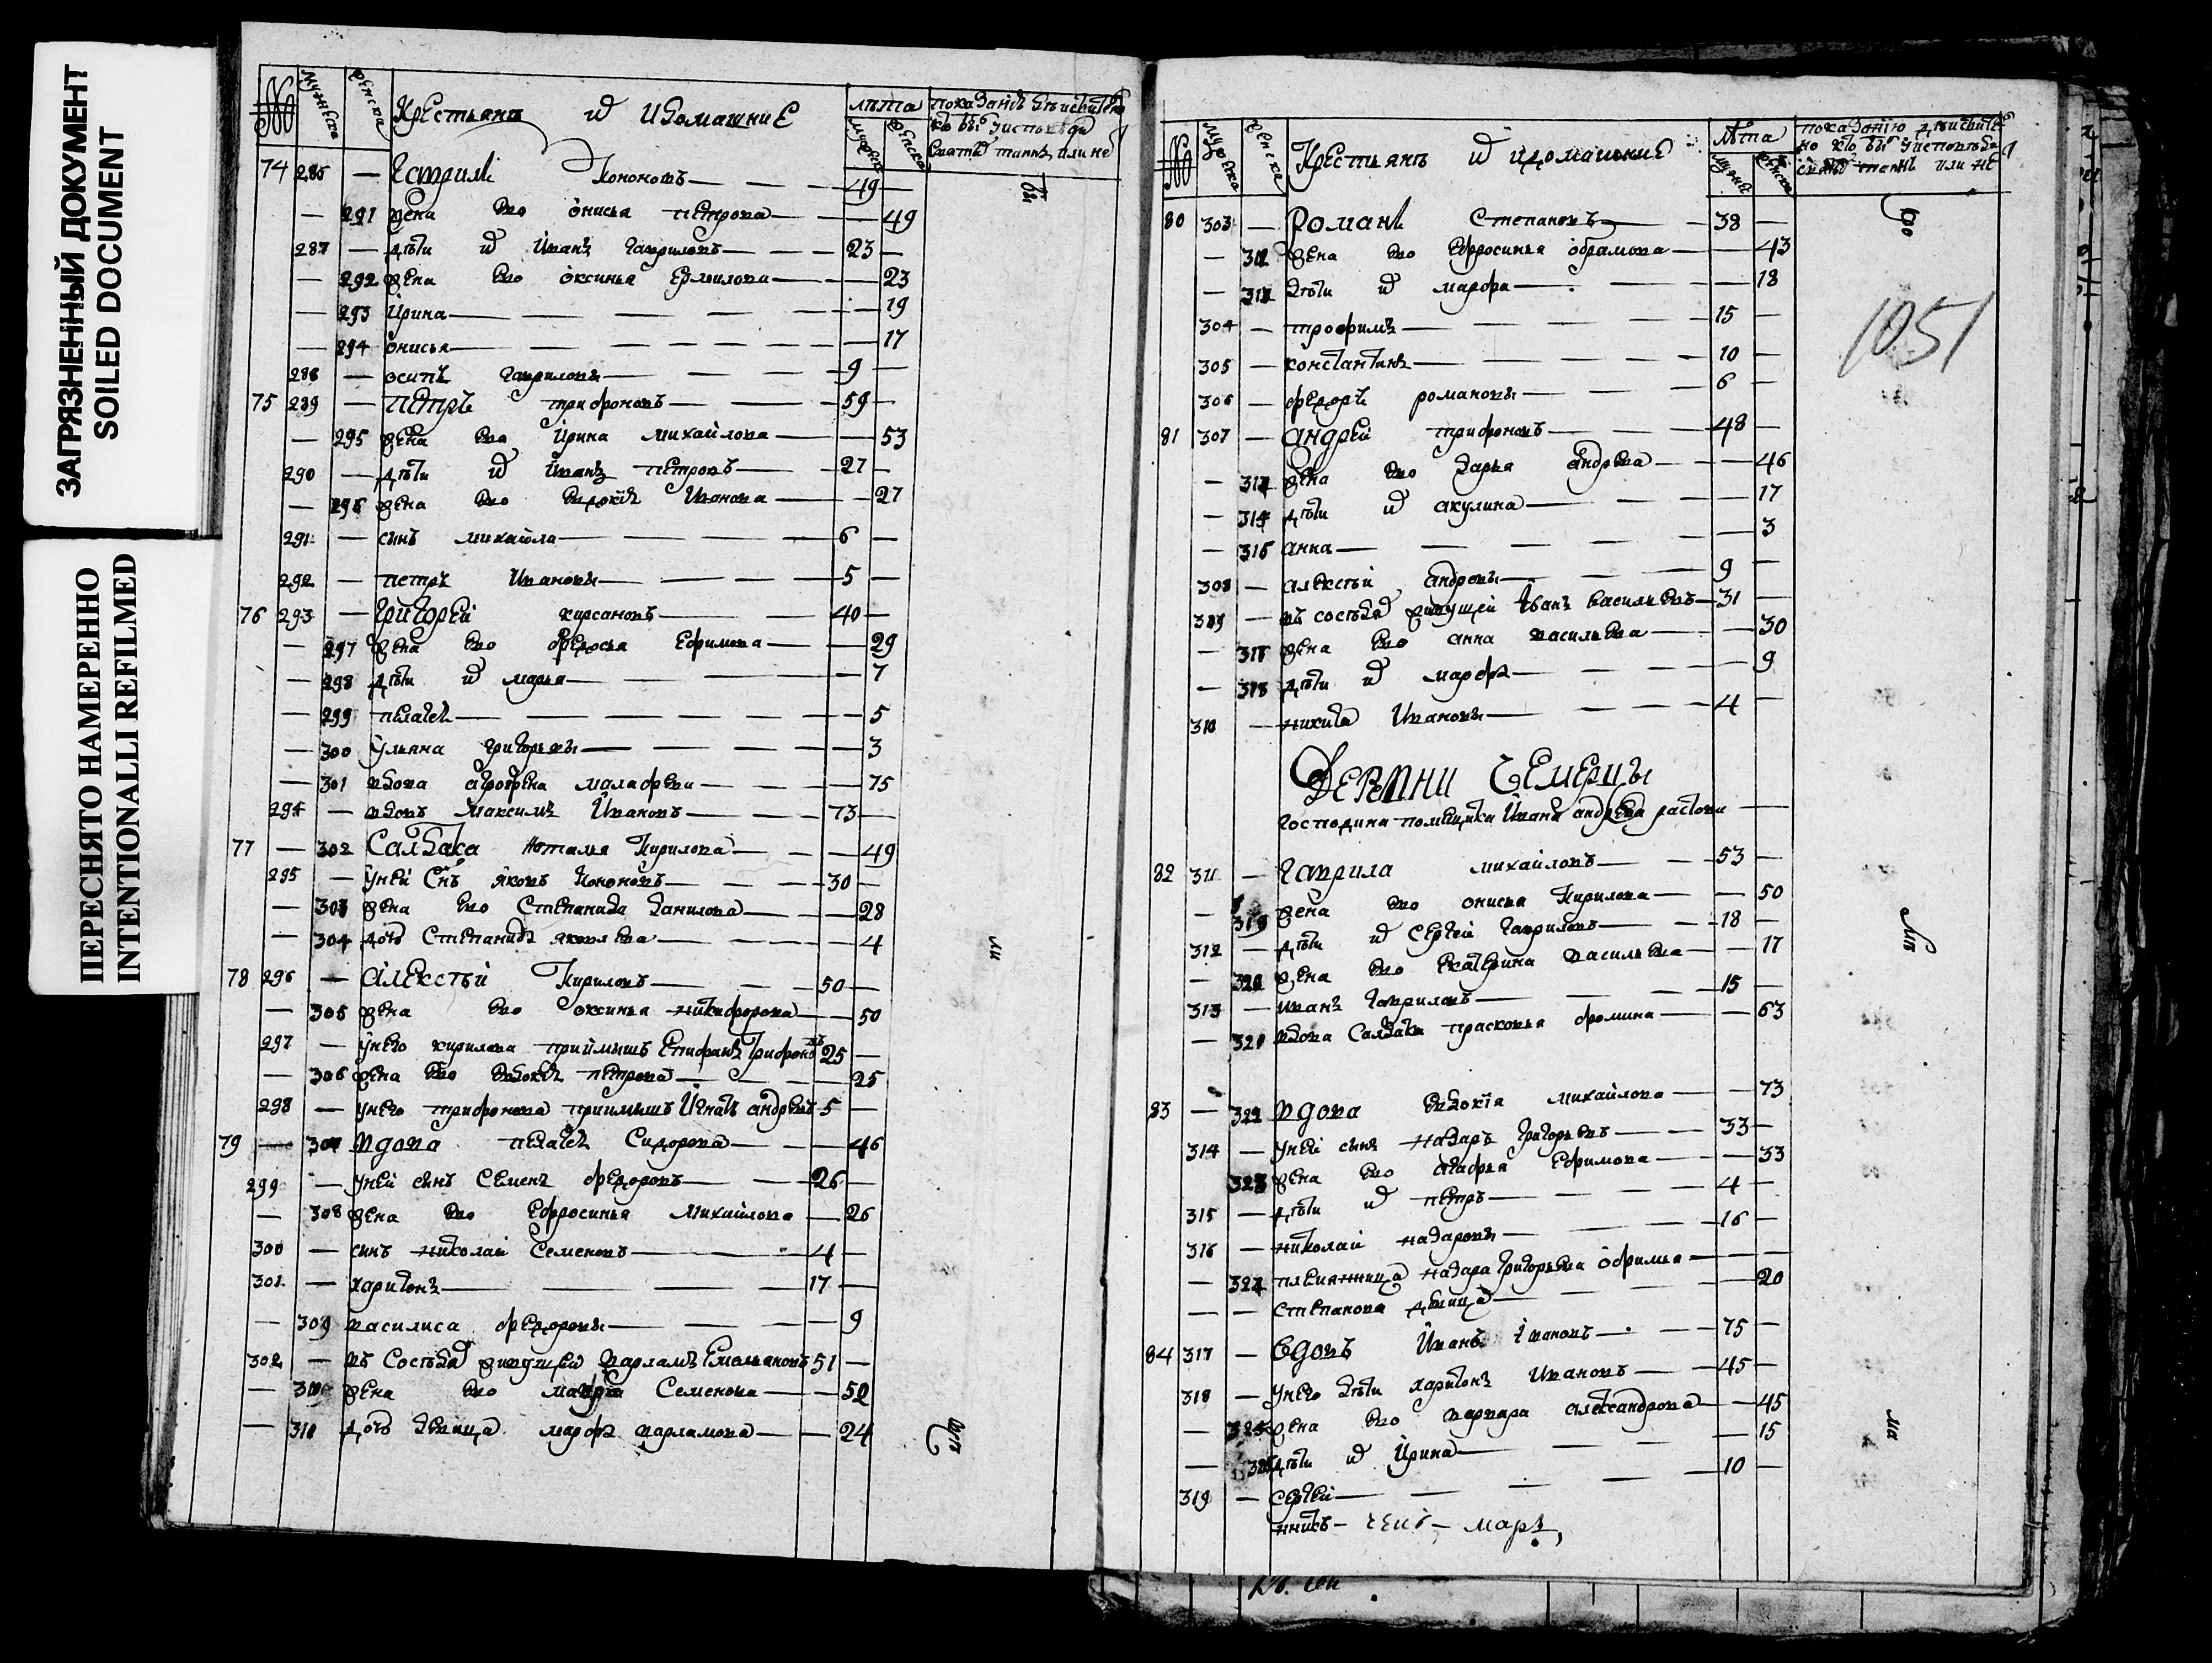 ЗАГРЯЗНЕННЫЙ ДОКУМЕНТ
SOILED DOCUMENT
ПЕРЕСНЯТО НАМЕРЕННО
INTENTIONALLI REFILMED
№ мужеска женска Крестьянъ и ихъ домашние лѣта
мужеска женска
74 286 — Гаврило Кононовъ — 49 —
— 291 жена ево онисья петрова — 49
287 — дѣти их Иванъ гавриловъ — 23 —
— 292 жена ево оксинья Ермилова — 23
— 293 Ирина — 19
— 294 ониcья — 17
288 — осипъ гавриловы — 9 —
75 289 — петръ трифоновъ — 59 —
— 295 жена ево Ирина михайлова — 53
290 — дѣти их Иванъ петровъ — 27 —
— 296 жена ево Евдокія Иванова — 27
291 — сынъ михайла — 6 —
292 — петръ Ивановы — 5 —
76 293 — григорей кирсановъ — 40 —
— 297 жена ево федосья Ефимова — 29
— 298 дѣти их марья — 7
— 299 пелагея — 5
— 300 Ульяна григорьевы — 3
— 301 вдова агрофена малафеева — 75
294 — вдовъ Максимъ Ивановъ — 73 —
77 — 302 Салдатка Наталья Кирилова — 49
295 — Унеи Снъ яковъ Кононовъ — 30 —
— 303 жена ево Степанида данилова — 28
— 304 дочь Степанида яковлева — 4
78 296 — Алексѣй Кириловъ — 50 —
— 305 жена ево оксинья никифорова — 50
297 — Унего кирилова приймышъ Епифанъ Трифоновъ 25 —
— 306 жена ево Евдокія петрова — 25
298 — Унего трифонова приимышъ Игнатъ андреевъ 5 —
79 — 307 Вдова пелагея Сидорова — 46
299 — Унеи сынъ Семенъ федоровъ — 26 —
— 308 жена ево Ефросинья Михайлова — 26
300 — сынъ николай Семеновъ — 4 —
301 — харитонъ — 17 —
— 309 василиса федоровы — 9
302 — въ Состѣдах живущей варламъ Емельяновъ 51 —
— 310 жена ево Семенова — 52
— 311 дочь девица марфа варламова — 24
№ мужеска женска Крестьянъ и ихъ домашние лѣта
80 303 — Романъ Степановъ — 38 —
— 312 жена ево Ефросинья абрамова — 43
— 313 дѣти их марфа — 18
304 — трофимъ — 15 —
305 — константинъ — 10 —
306 — федоръ романовы — 6 —
81 307 — Андрей трифоновъ — 48 —
— жена ево дарья андреева — 46
— дѣти их акулина — 17
— 316 анна — 3
308 — алексѣй андреевы — 9 —
309 — въ состѣдах живущей Иванъ васильевъ — 31 —
— 317 жена ево анна васильева — 30
— 318 дѣти их марфа — 9
310 — никита Ивановы — 4 —
1051
Деревни Чемерцы
господина помещика Ивана андреева растова
82 311 — Гаврила михайловъ — 53 —
— 319 жена ево ониcья Кирилова — 50
312 — дѣти их Сергей гавриловъ — 18 —
— 320 жена ево Екатерина васильева — 17
313 — Иванъ гавриловъ — 15 —
— 321 вдова Салдатка прасковья фомина — 63
83 — 322 Вдова Евдокія михайлова — 73
314 — Унеи сынъ назаръ григорьевъ — 33 —
323 жена ево агафья Ефимова — 33
315 — дѣти их петръ — 4 —
316 — николай назаровы — 16 —
— 324 племянница назара григорьева офимья —
— — степанова девица — 20
84 317 — Вдовъ Иванъ Ивановъ — 75 —
318 — Унего дѣти харитонъ Ивановъ — 45 —
— 325 жена ево варвара александрова — 45
— 326 дѣти их Ирина — 15
319 — сергей — 10 —